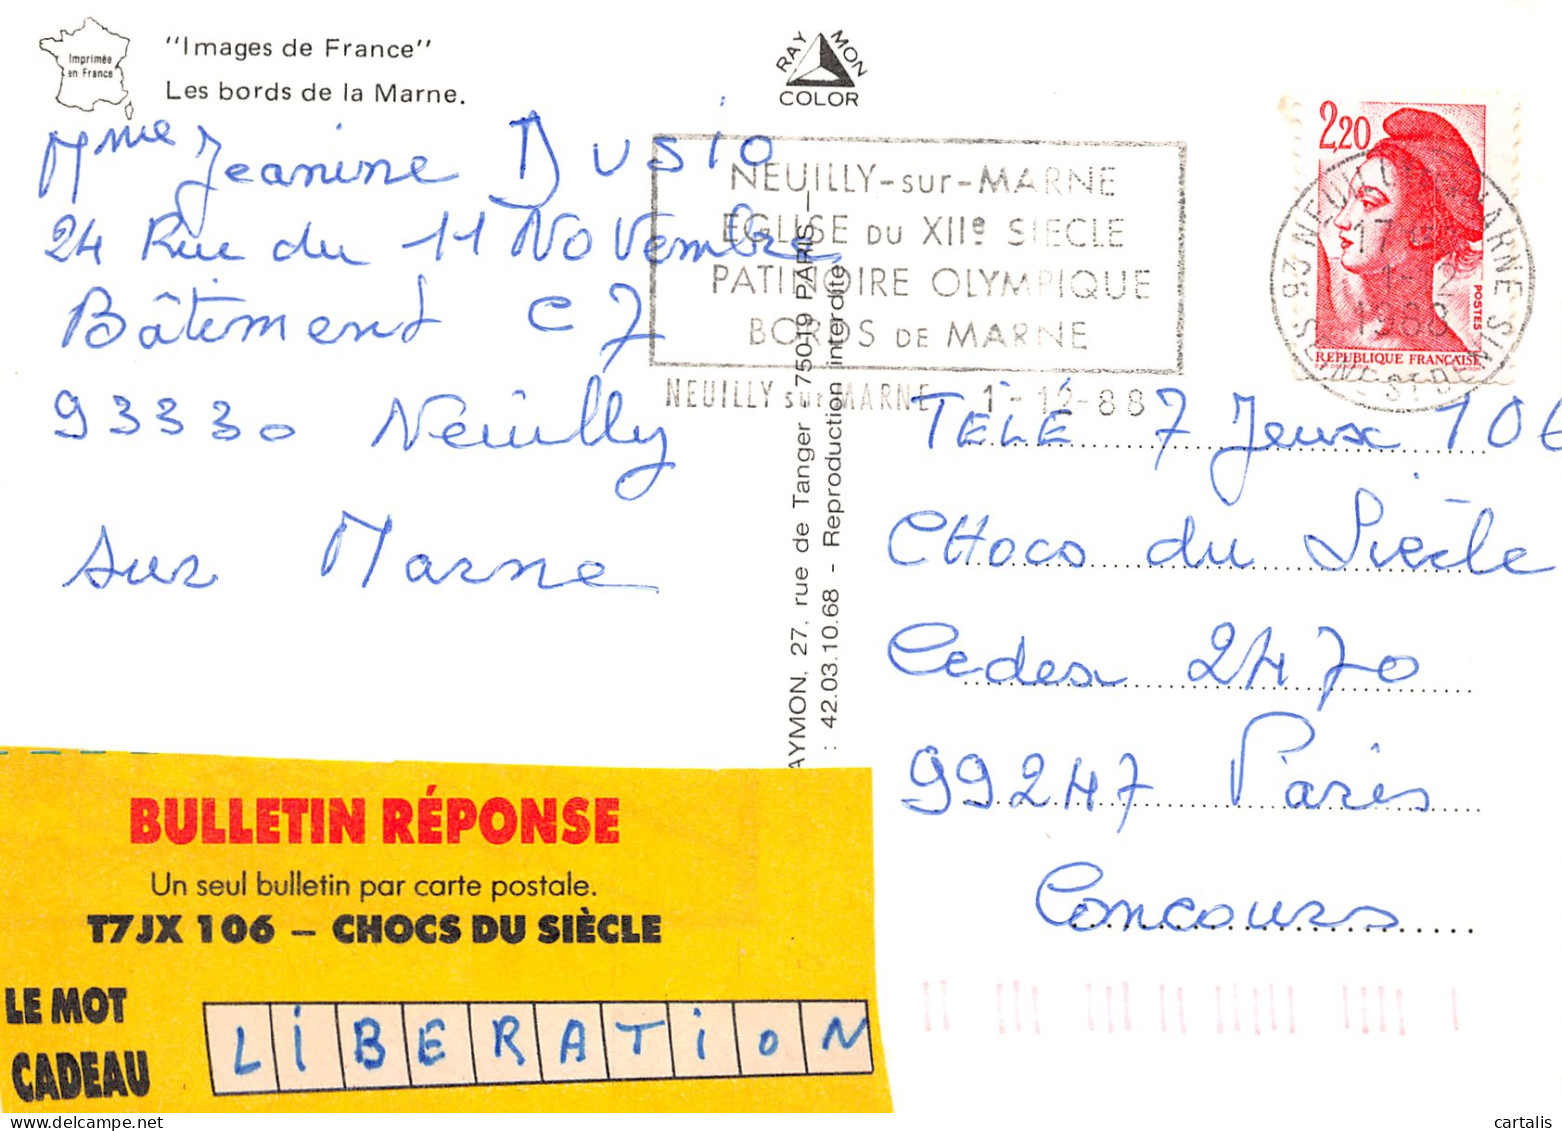 Imprimée
en France
"Images de France"
Les bords de la Marne.
RAYMON
COLOR
Mme Jeanine Dusio
24 Rue du 11 Novembre
Bâtiment C7
93330 Neuilly
sur Marne
NEUILLY-sur-MARNE
EGLISE DU XIIe SIECLE
PATINOIRE OLYMPIQUE
BORDS DE MARNE
NEUILLY sur MARNE 1-12-88
2,20
POSTES
REPUBLIQUE FRANÇAISE
93 NEUILLY SUR MARNE
17
1-12
1988
SEINE ST DENIS
AYMON, 27, rue de Tanger - 75019 PARIS -
: 42.03.10.68 - Reproduction interdite
TÉLÉ 7 Jeux 106
CHocs du Siècle
Cedex 2470
99247 Paris
Concours
BULLETIN RÉPONSE
Un seul bulletin par carte postale.
T7JX 106 – CHOCS DU SIÈCLE
LE MOT
CADEAU
LiBERATiON
cartalis